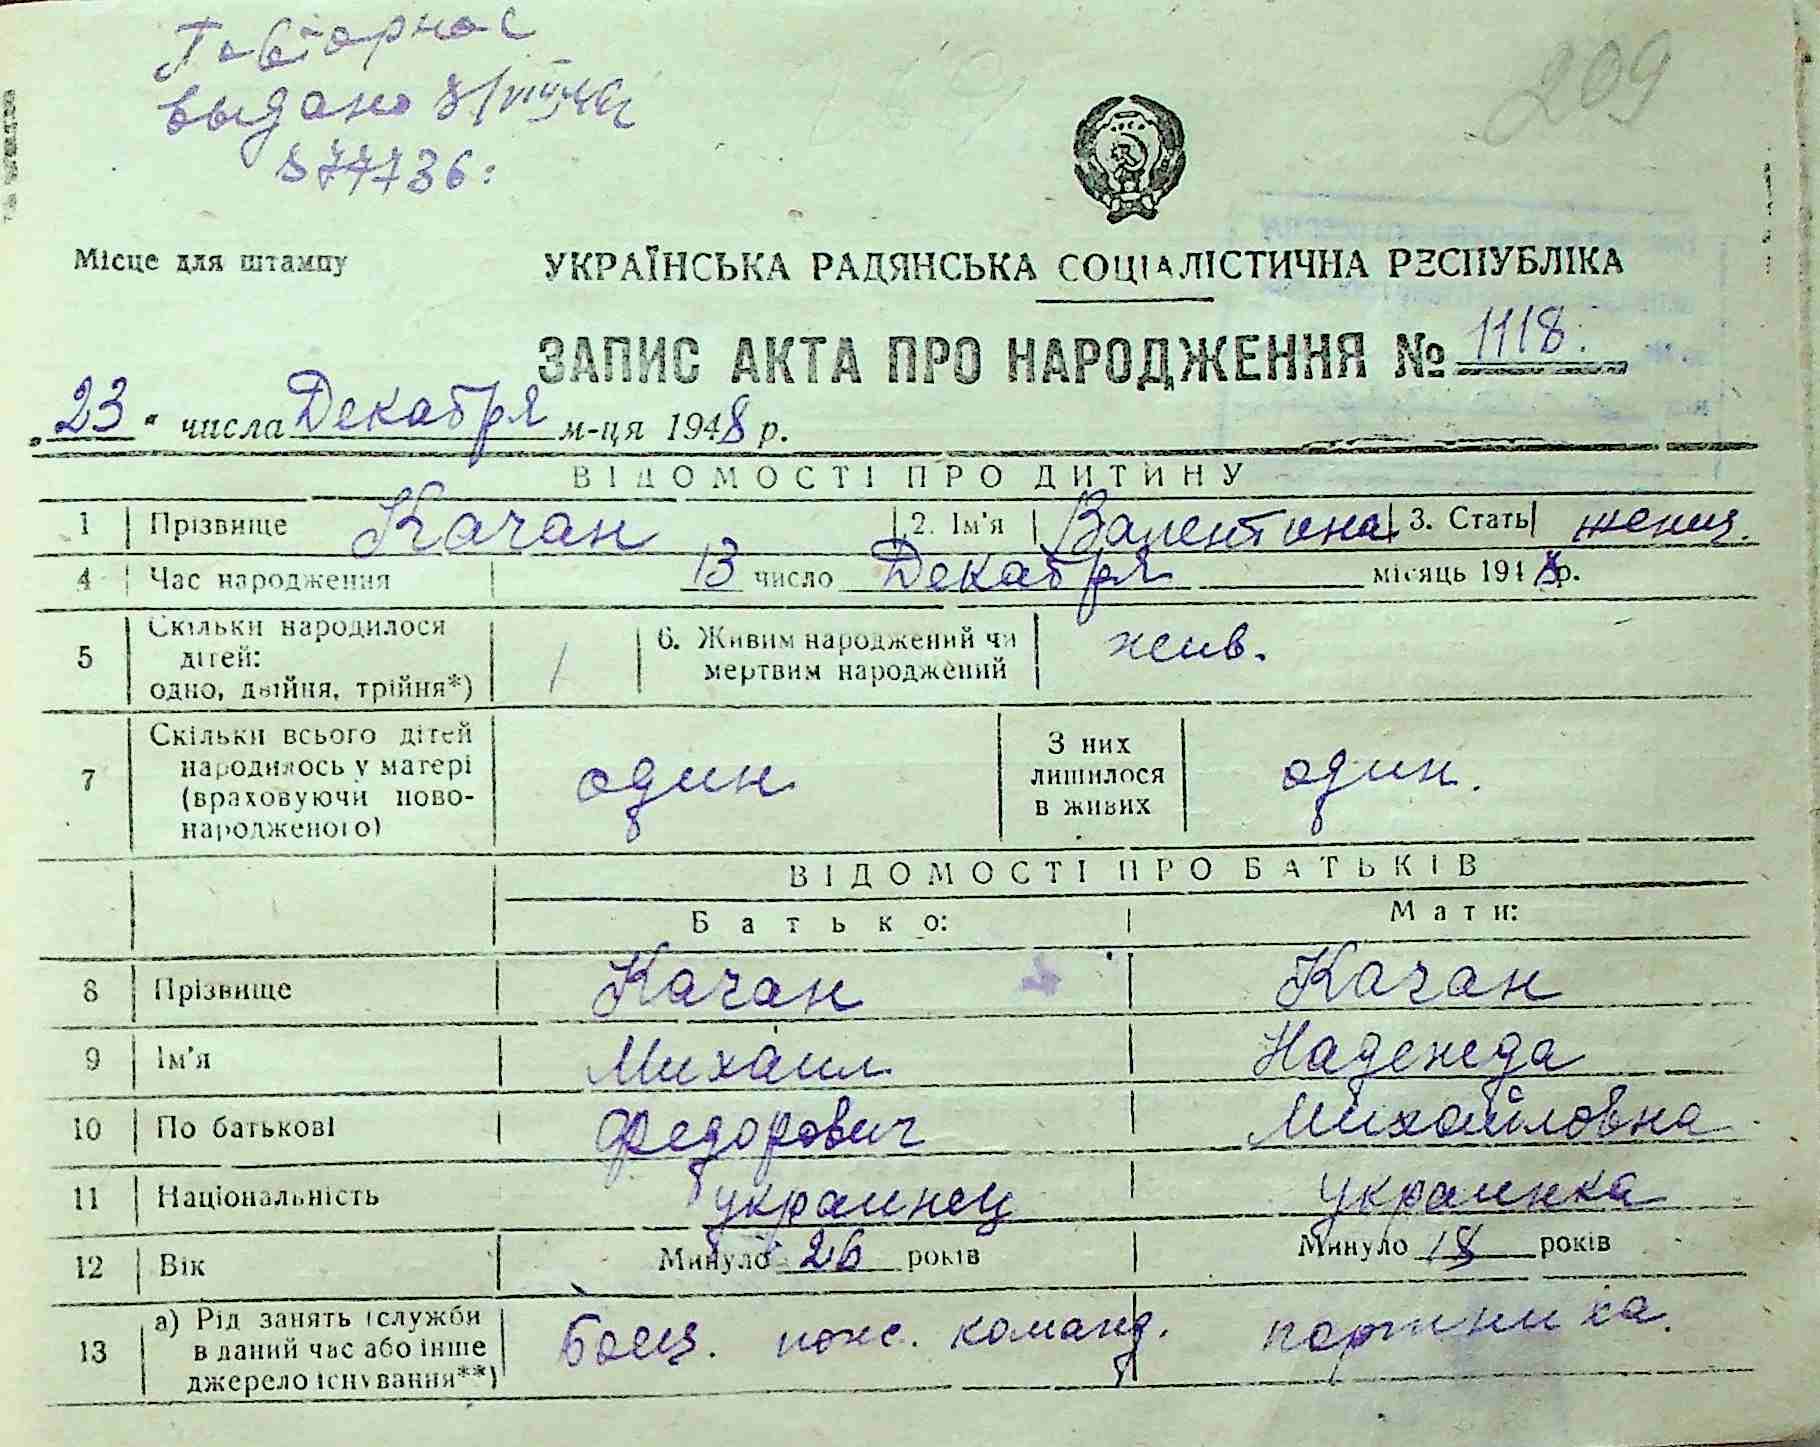 Повторное
выдано
577736:
209
Місце для штампу
УКРАЇНСЬКА РАДЯНСЬКА СОЦІАЛІСТИЧНА РЕСПУБЛІКА
ЗАПИС АКТА ПРО НАРОДЖЕННЯ № 1118.
„23“ числа Декабря м-ця 1948 р.
ВІДОМОСТІ ПРО ДИТИНУ
1 Прізвище Качан 2. Ім'я Валентина 3. Стать женщ.
4 Час народження 13 число Декабря місяць 1948 р.
5 Скільки народилося дітей: одно, двійня, трійня*) 1 6. Живим народжений чи мертвим народжений жив.
7 Скільки всього дітей народилось у матері (враховуючи новонародженого) один З них лишилося в живих один.
ВІДОМОСТІ ПРО БАТЬКІВ
Батько: Мати:
8 Прізвище Качан Качан
9 Ім'я Михаил Надежда
10 По батькові Федорович Михайловна
11 Національність украинец украинка
12 Вік Минуло 26 років Минуло 18 років
13 а) Рід занять (служби в даний час або інше джерело існування**) Боец. пожс. команд. портниха.